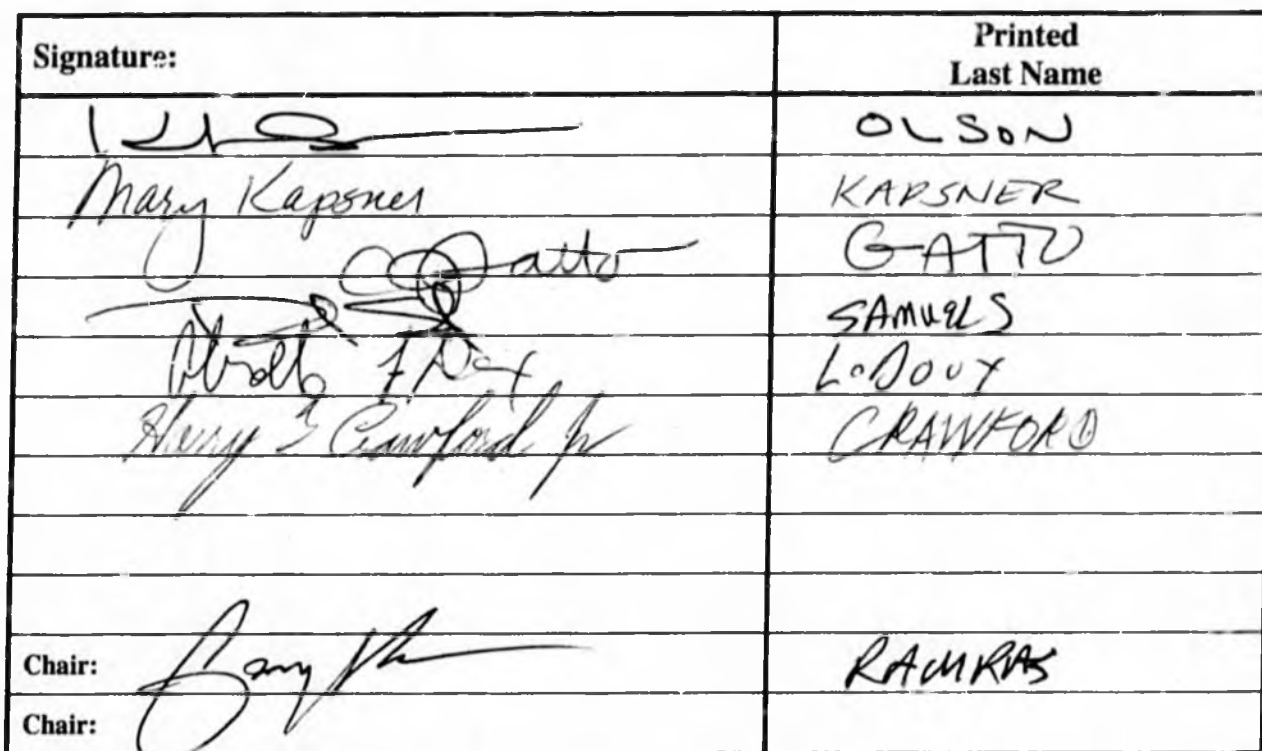 Signature:
Printed
Last Name
OLSON
Mary Kapsner
KAPSNER
Gatto
GATTO
SAMUELS
LeDoux
Harry Crawford Jr
CRAWFORD
Chair:
RAMRAS
Chair: